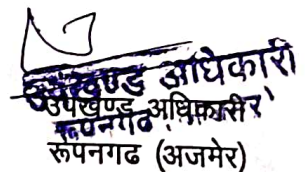 उपखण्ड अधिकारी
उपखण्ड अधिकारी
रूपनगढ
रूपनगढ (अजमेर)